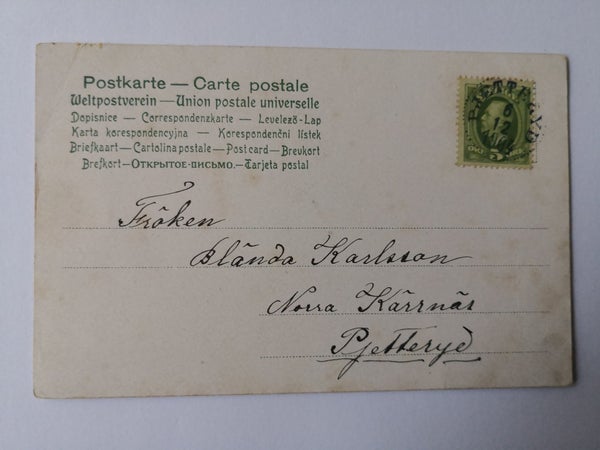 Postkarte — Carte postale
Weltpostverein — Union postale universelle
Dopisnice — Correspondenzkarte — Levelező-Lap
Karta korespondencyjna — Korespondenční lístek
Briefkaart — Cartolina postale — Post card — Brevkort
Brefkort — ОТКРЫТОЕ-ПИСЬМО. — Tarjeta postal
Fröken
Blända Karlsson
Norra Kärrnäs
Pjetteryd